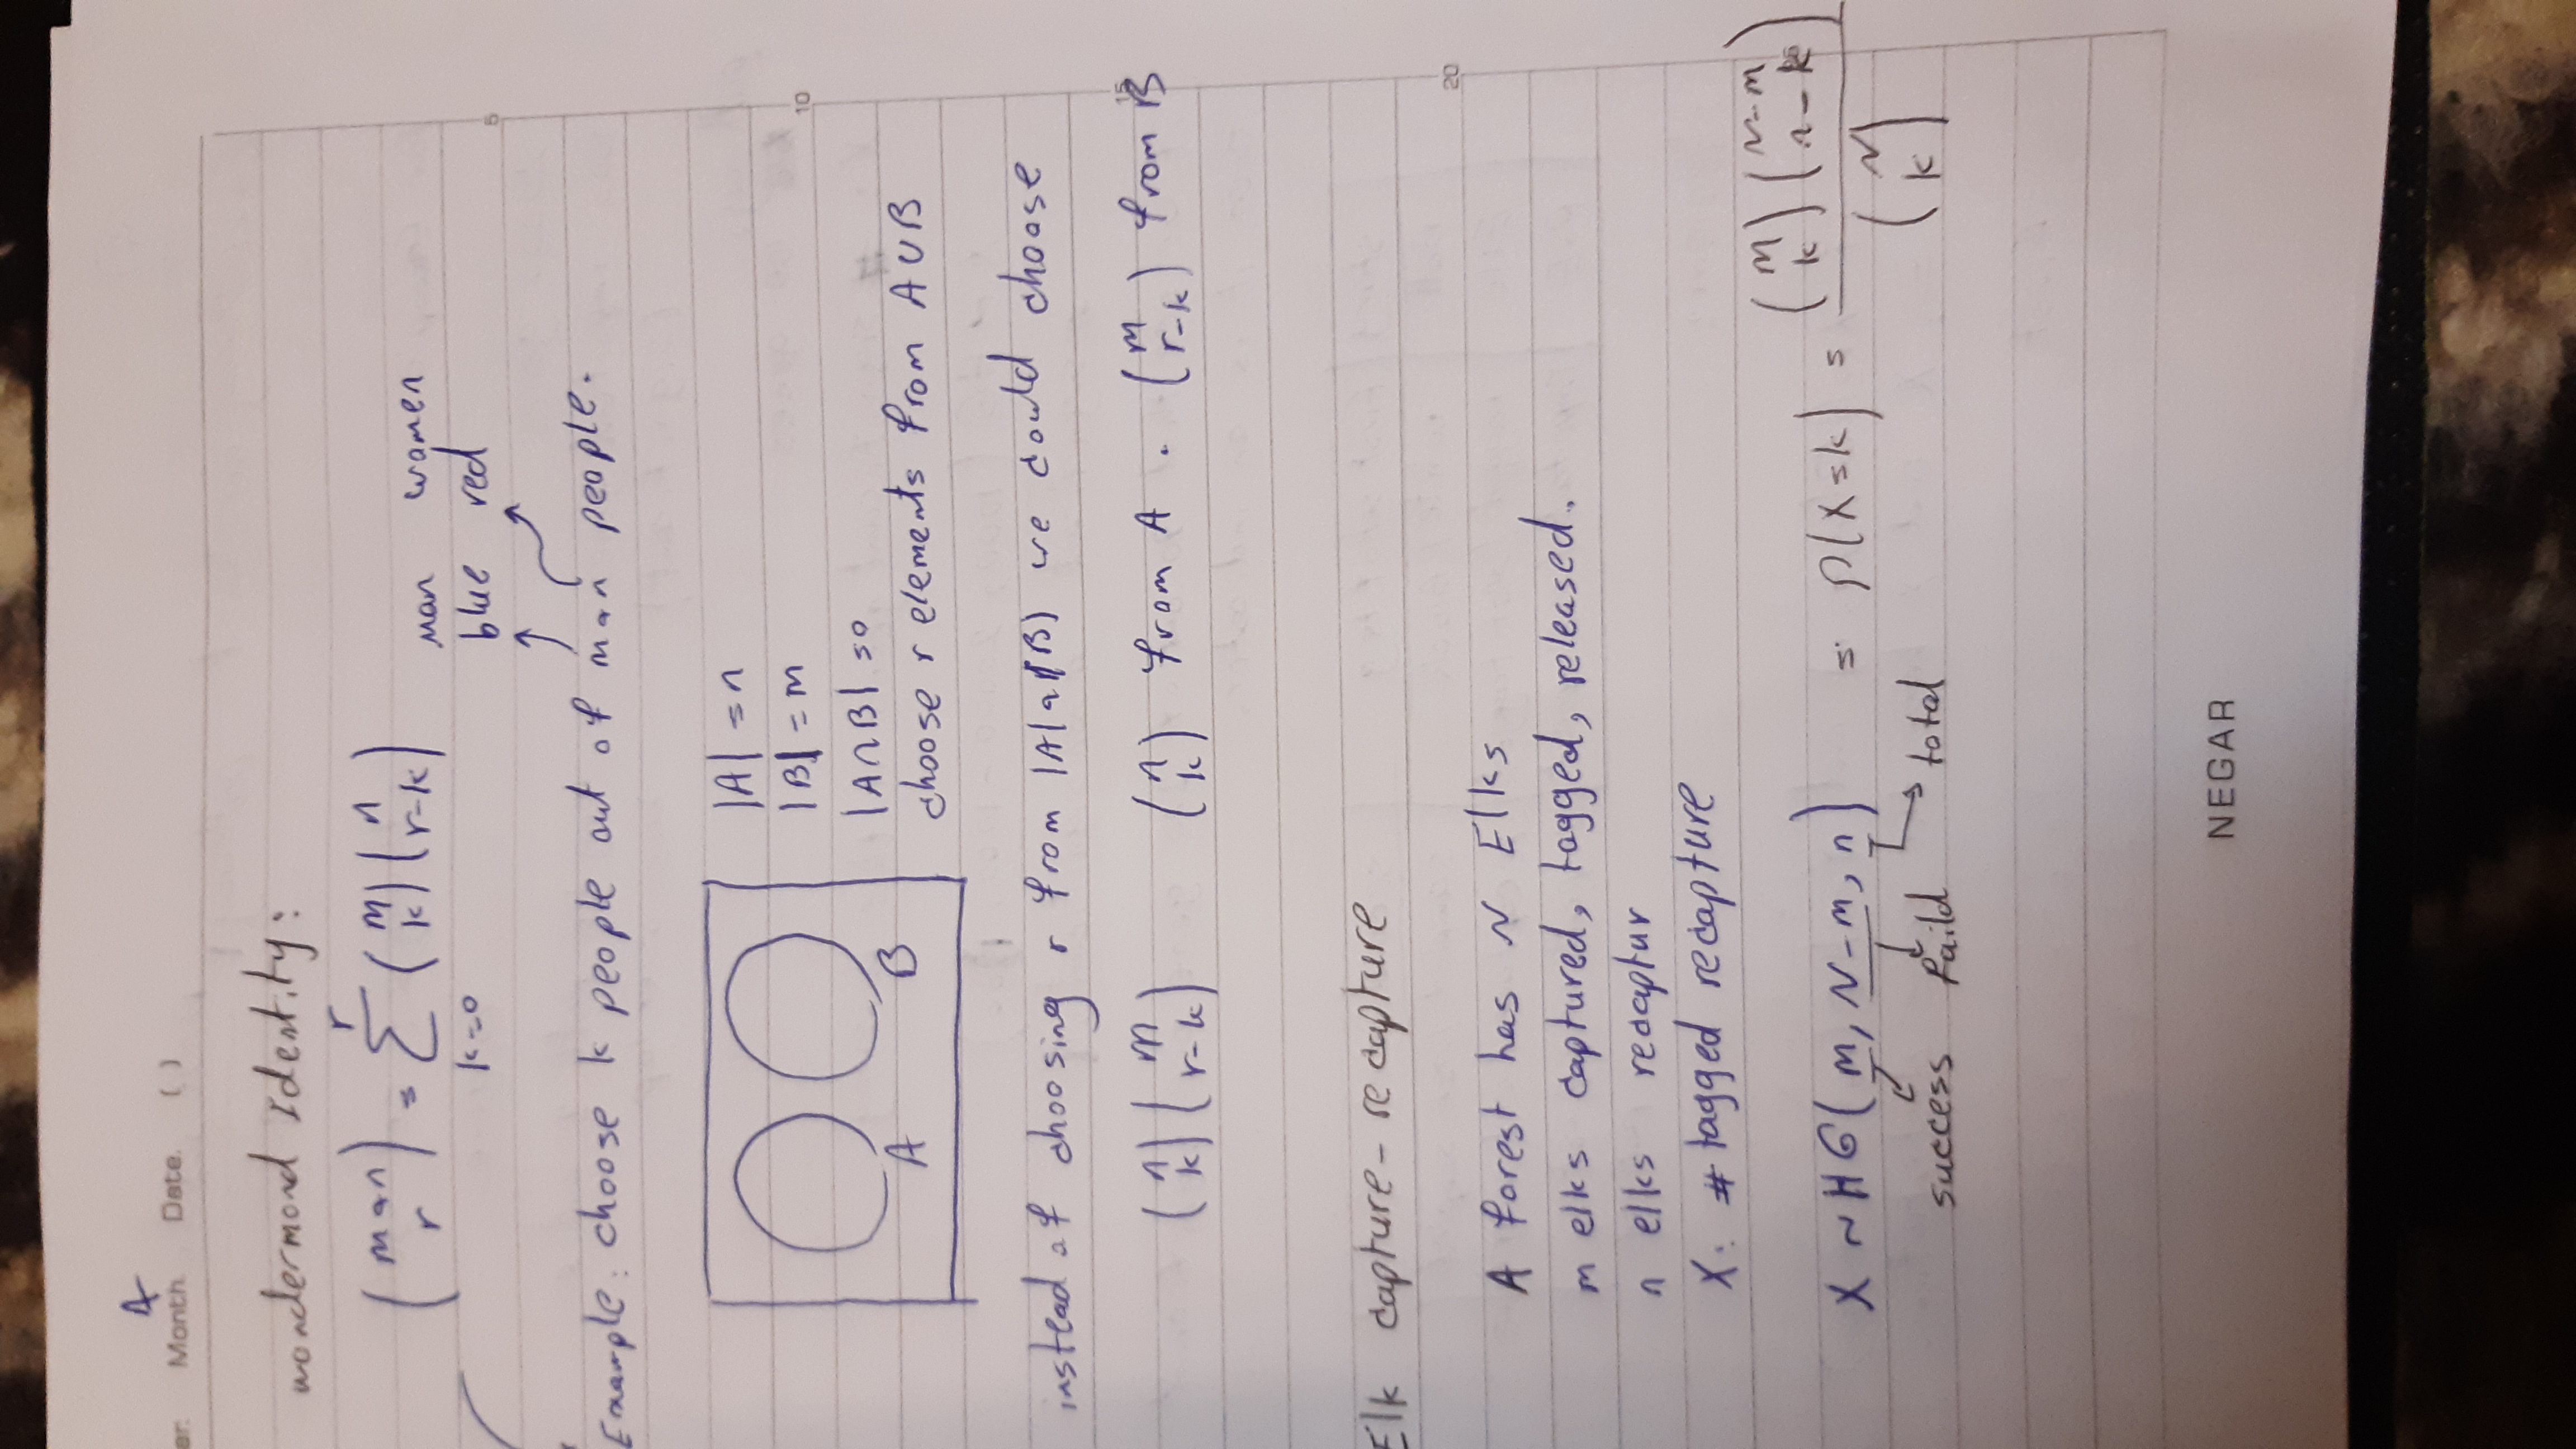 4
er. Month. Date. ( )
wondermond Identity:
(m+n r) = Σ r k=0 (m k)(n r-k)
man women
blue red
5
Example: choose k people out of m+n people.
|A| = n
|B| = m
10
|A∩B| = 0
A B
choose r elements from A∪B
instead of choosing r from |A|+|B| we could choose
15
(n k)(m r-k) (n k) from A . (m r-k) from B
Elk capture-recapture
20
A forest has N Elks
m elks captured, tagged, released.
n elks recaptur
X: # tagged recapture
X ~ HG(m, N-m, n) = P(X=k) = (m k)(N-m n-k) / (N k)
success faild total
NEGAR